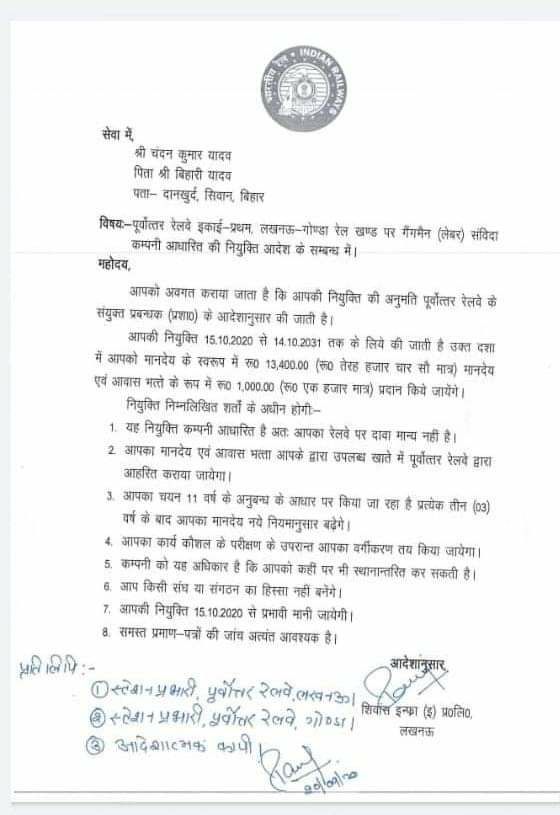 भारतीय रेल INDIAN RAILWAYS
सेवा में,
श्री चंदन कुमार यादव
पिता श्री बिहारी यादव
पता– दानखुर्द, सिवान, बिहार
विषयः–पूर्वोत्तर रेलवे इकाई–प्रथम, लखनऊ–गोण्डा रेल खण्ड पर गैंगमैन (लेबर) संविदा
कम्पनी आधारित की नियुक्ति आदेश के सम्बन्ध में।
महोदय,
आपको अवगत कराया जाता है कि आपकी नियुक्ति की अनुमति पूर्वोत्तर रेलवे के
संयुक्त प्रबन्धक (प्रशा0) के आदेशानुसार की जाती है।
आपकी नियुक्ति 15.10.2020 से 14.10.2031 तक के लिये की जाती है उक्त दशा
में आपको मानदेय के स्वरूप में रू0 13,400.00 (रू0 तेरह हजार चार सौ मात्र) मानदेय
एवं आवास भत्ते के रूप में रू0 1,000.00 (रू0 एक हजार मात्र) प्रदान किये जायेंगे।
नियुक्ति निम्नलिखित शर्तो के अधीन होगीः–
1. यह नियुक्ति कम्पनी आधारित है अतः आपका रेलवे पर दावा मान्य नही है।
2. आपका मानदेय एवं आवास भत्ता आपके द्वारा उपलब्ध खाते में पूर्वोत्तर रेलवे द्वारा
आहरित कराया जायेगा।
3. आपका चयन 11 वर्ष के अनुबन्ध के आधार पर किया जा रहा है प्रत्येक तीन (03)
वर्ष के बाद आपका मानदेय नये नियमानुसार बढ़ेगे।
4. आपका कार्य कौशल के परीक्षण के उपरान्त आपका वर्गीकरण तय किया जायेगा।
5. कम्पनी को यह अधिकार है कि आपको कहीं पर भी स्थानान्तरित कर सकती है।
6. आप किसी संघ या संगठन का हिस्सा नहीं बनेंगे।
7. आपकी नियुक्ति 15.10.2020 से प्रभावी मानी जायेगी।
8. समस्त प्रमाण–पत्रों की जांच अत्यंत आवश्यक है।
आदेशानुसार,
शिवांस इन्फ्रा (इ) प्र0लि0,
लखनऊ
प्रतिलिपि :-
① स्टेशन प्रभारी, पूर्वोत्तर रेलवे, लखनऊ।
② स्टेशन प्रभारी, पूर्वोत्तर रेलवे, गोण्डा।
③ आदेशात्मक कापी।